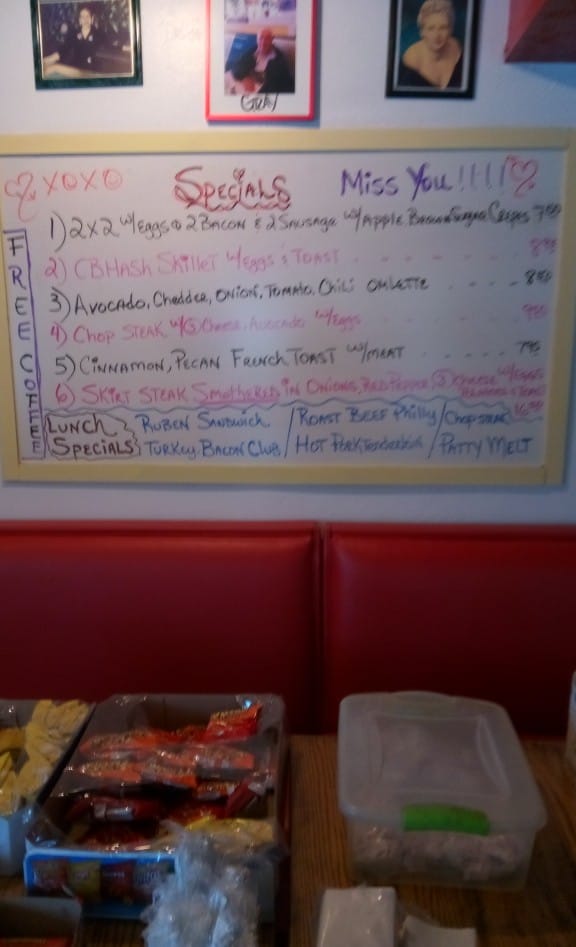 GRAY
XOXO Specials Miss You!!!!
FREE COFFEE
1) 2x2 w/Eggs 2 Bacon & 2 Sausage w/Apple
2) CBHASH Skillet w/Eggs & TOAST
3) AVOCADO, Cheddar, ONION, TOMATO, Chili OMLETTE
4) Chop STEAK w/ Cheese, Avocado w/Eggs
5) CINNAMON, PECAN FRENCH TOAST w/MEAT 795
6) SKIRT STEAK Smothered in ONIONS, RED Pepper Cheese w/EGGS
LUNCH SPECIALS
RUBEN SANDWICH / ROAST BEEF Philly / Chop STEAK
TURKEY BACON CLUB / HOT PORK Tenderloin / PATTY MELT